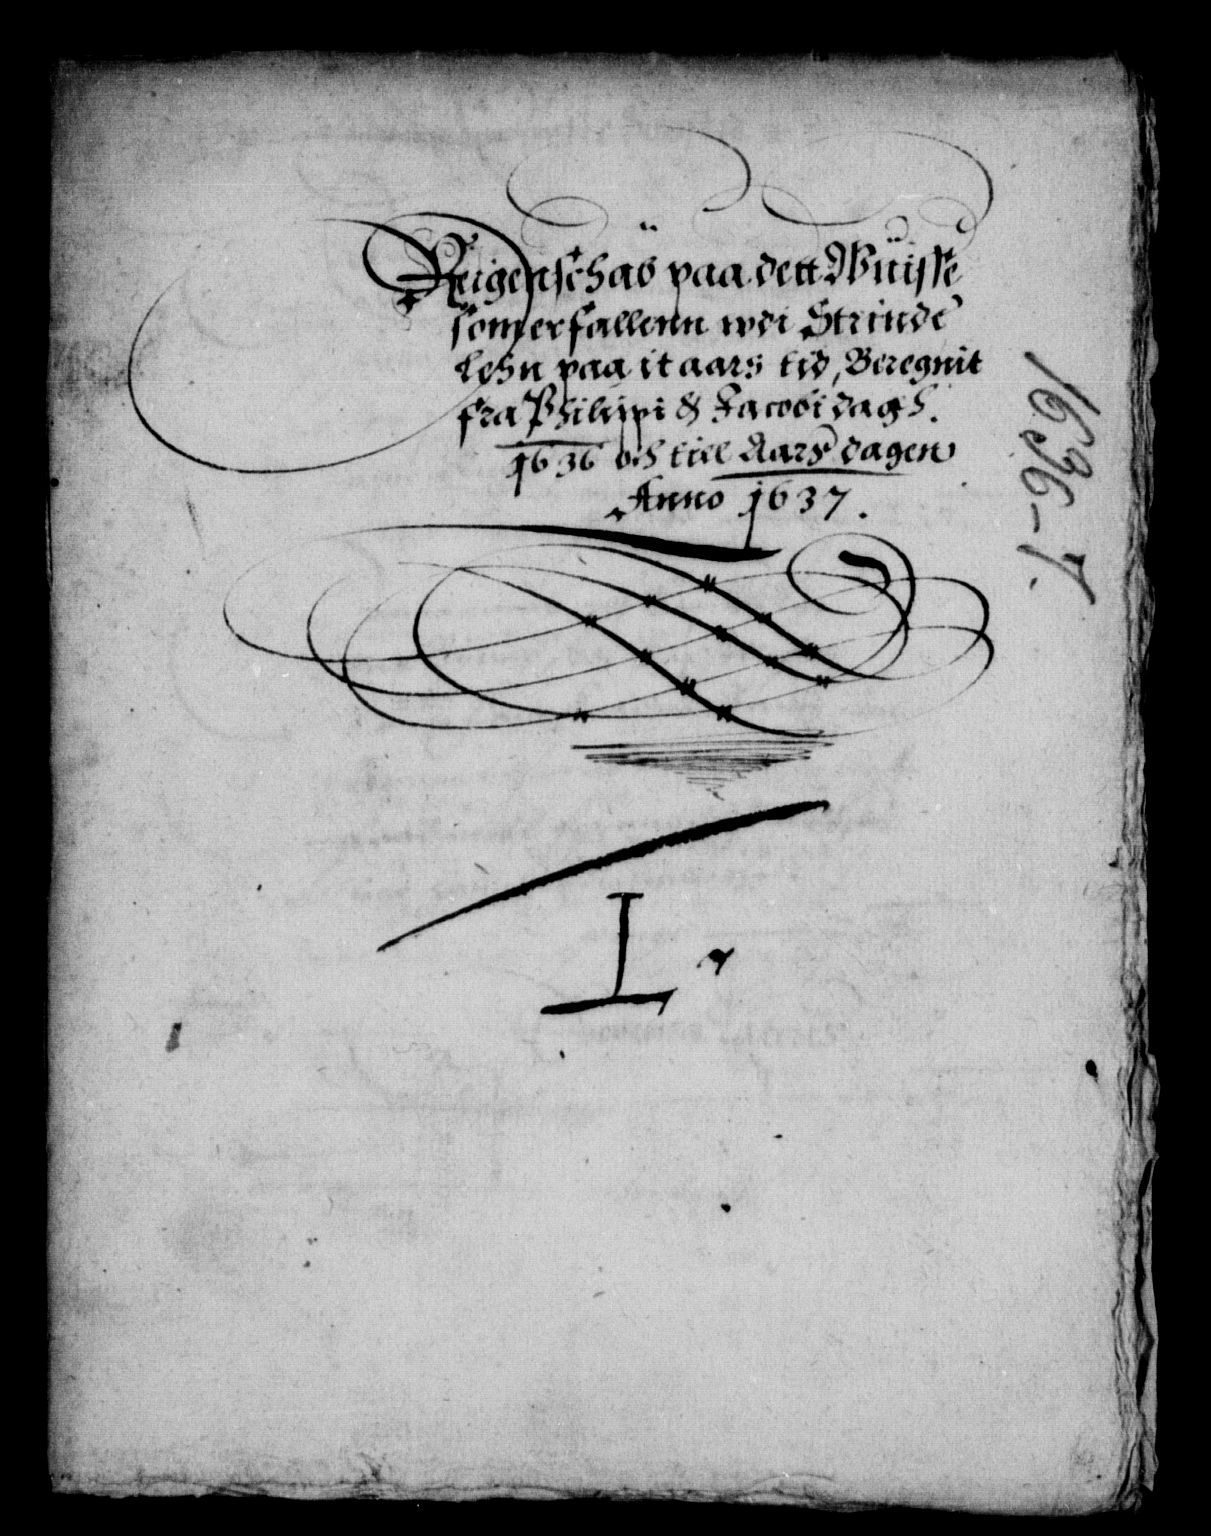 Reigenschab paa dett Wüisse
som er fallenn wdi Strinde
lehn paa it aars tid, Beregnit
fra Philippi & Jacobi dagh.
1636 och till Aars dagen
Anno 1637.
1636-7.
I